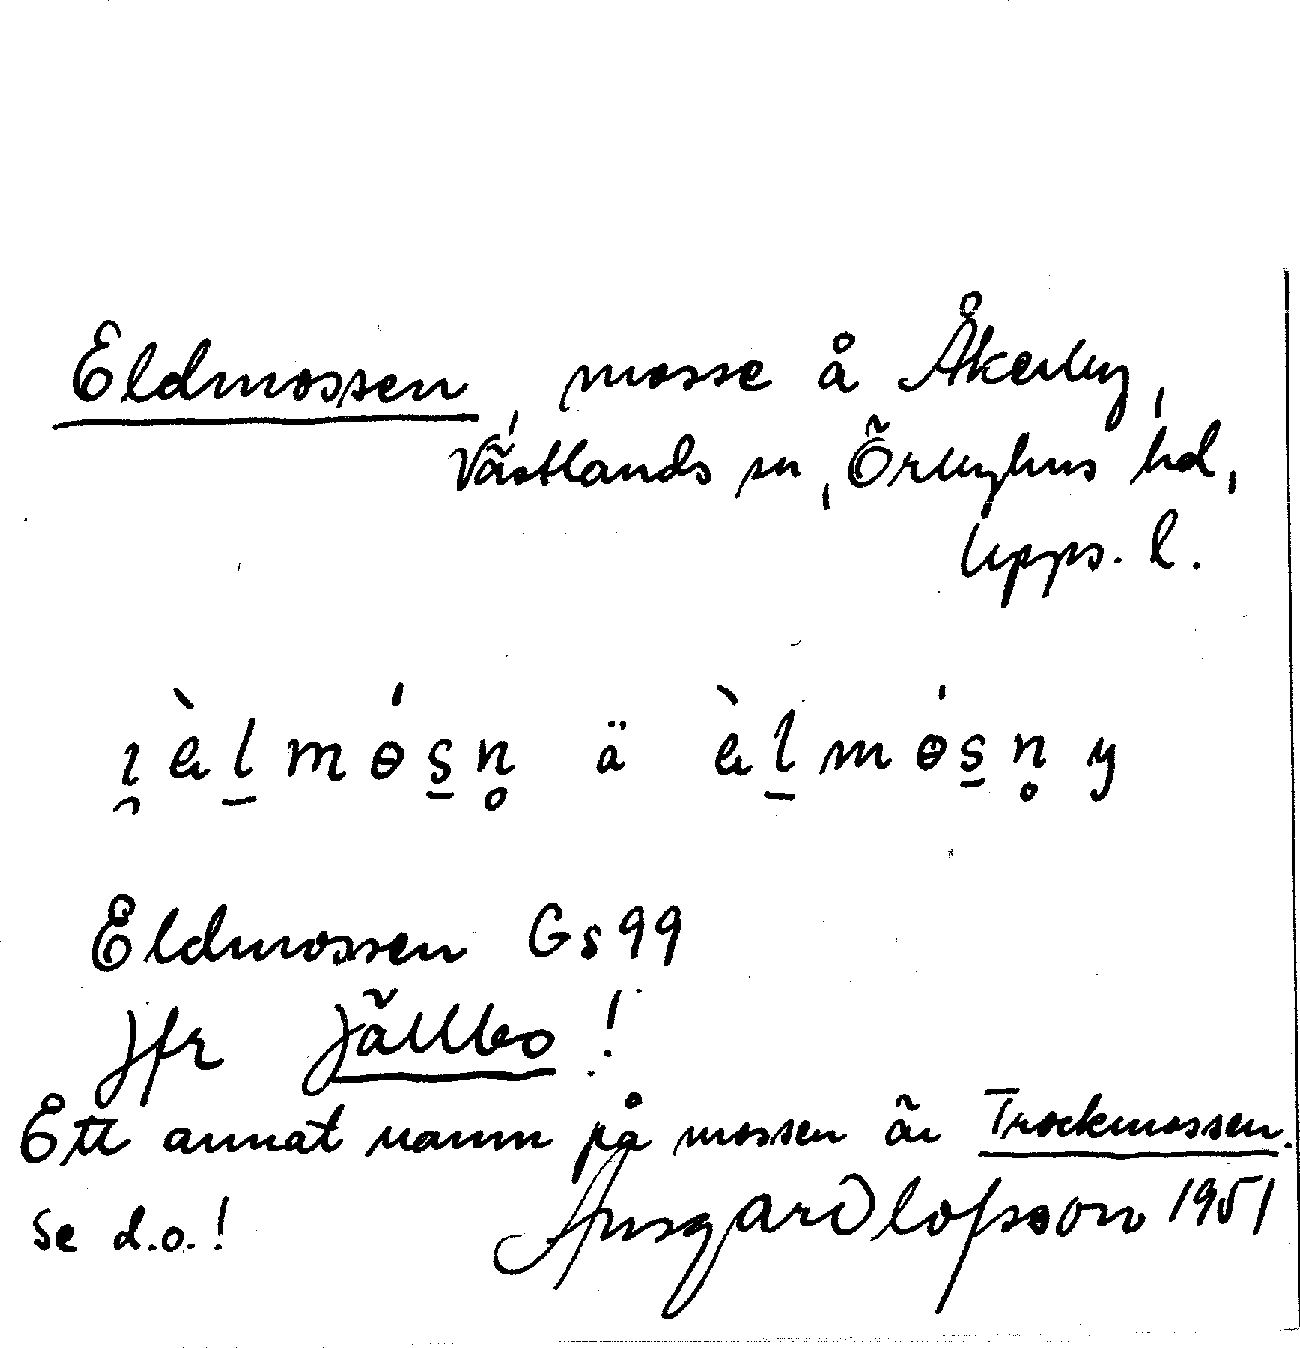 Eldmossen, mosse å Åkerby,
Västlands sn, Örbyhus hd,
Upps. l.
ı̯èl̠mɵ́s̠n̥ ä èl̠mɵ́s̠n̥ y
Eldmossen Gs 99
Jfr Jällbo!
Ett annat namn på mossen är Trockmossen.
Se d.o.! Ansgar Olofsson 1951